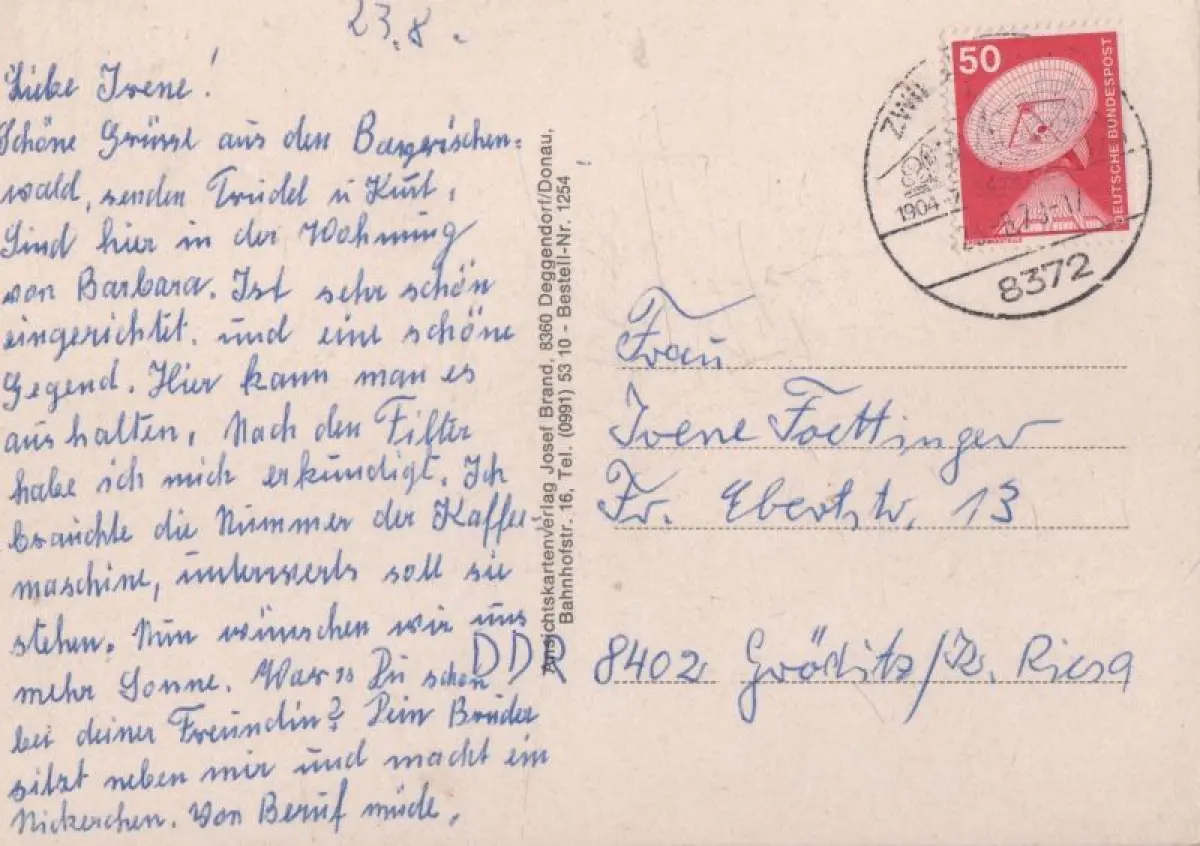 23.8.
Liebe Irene!
Schöne Grüsse aus den Bayerischen-
wald, senden Trudel u Kurt.
Sind hier in der Wohnung
von Barbara. Ist sehr schön
eingerichtet. und eine schöne
Gegend. Hier kann man es
aushalten. Nach den Filter
habe ich mich erkündigt. Ich
brauchte die Nummer der Kaffee-
maschine, unterwerts soll sie
stehen. Nun wünschen wir uns
mehr Sonne. Warst Du schon
bei deiner Freundin? Dein Bruder
sitzt neben mir und macht ein
Nickerchen. Von Beruf müde.
Ansichtskartenverlag Josef Brand, 8360 Deggendorf/Donau,
Bahnhofstr. 16, Tel. (0991) 53 10 - Bestell-Nr. 1254
50
DEUTSCHE BUNDESPOST
1904
8372
Frau
Irene Foettinger
Fr. Ebertstr. 13
DDR 8402 Gröditz/Kr. Riesa